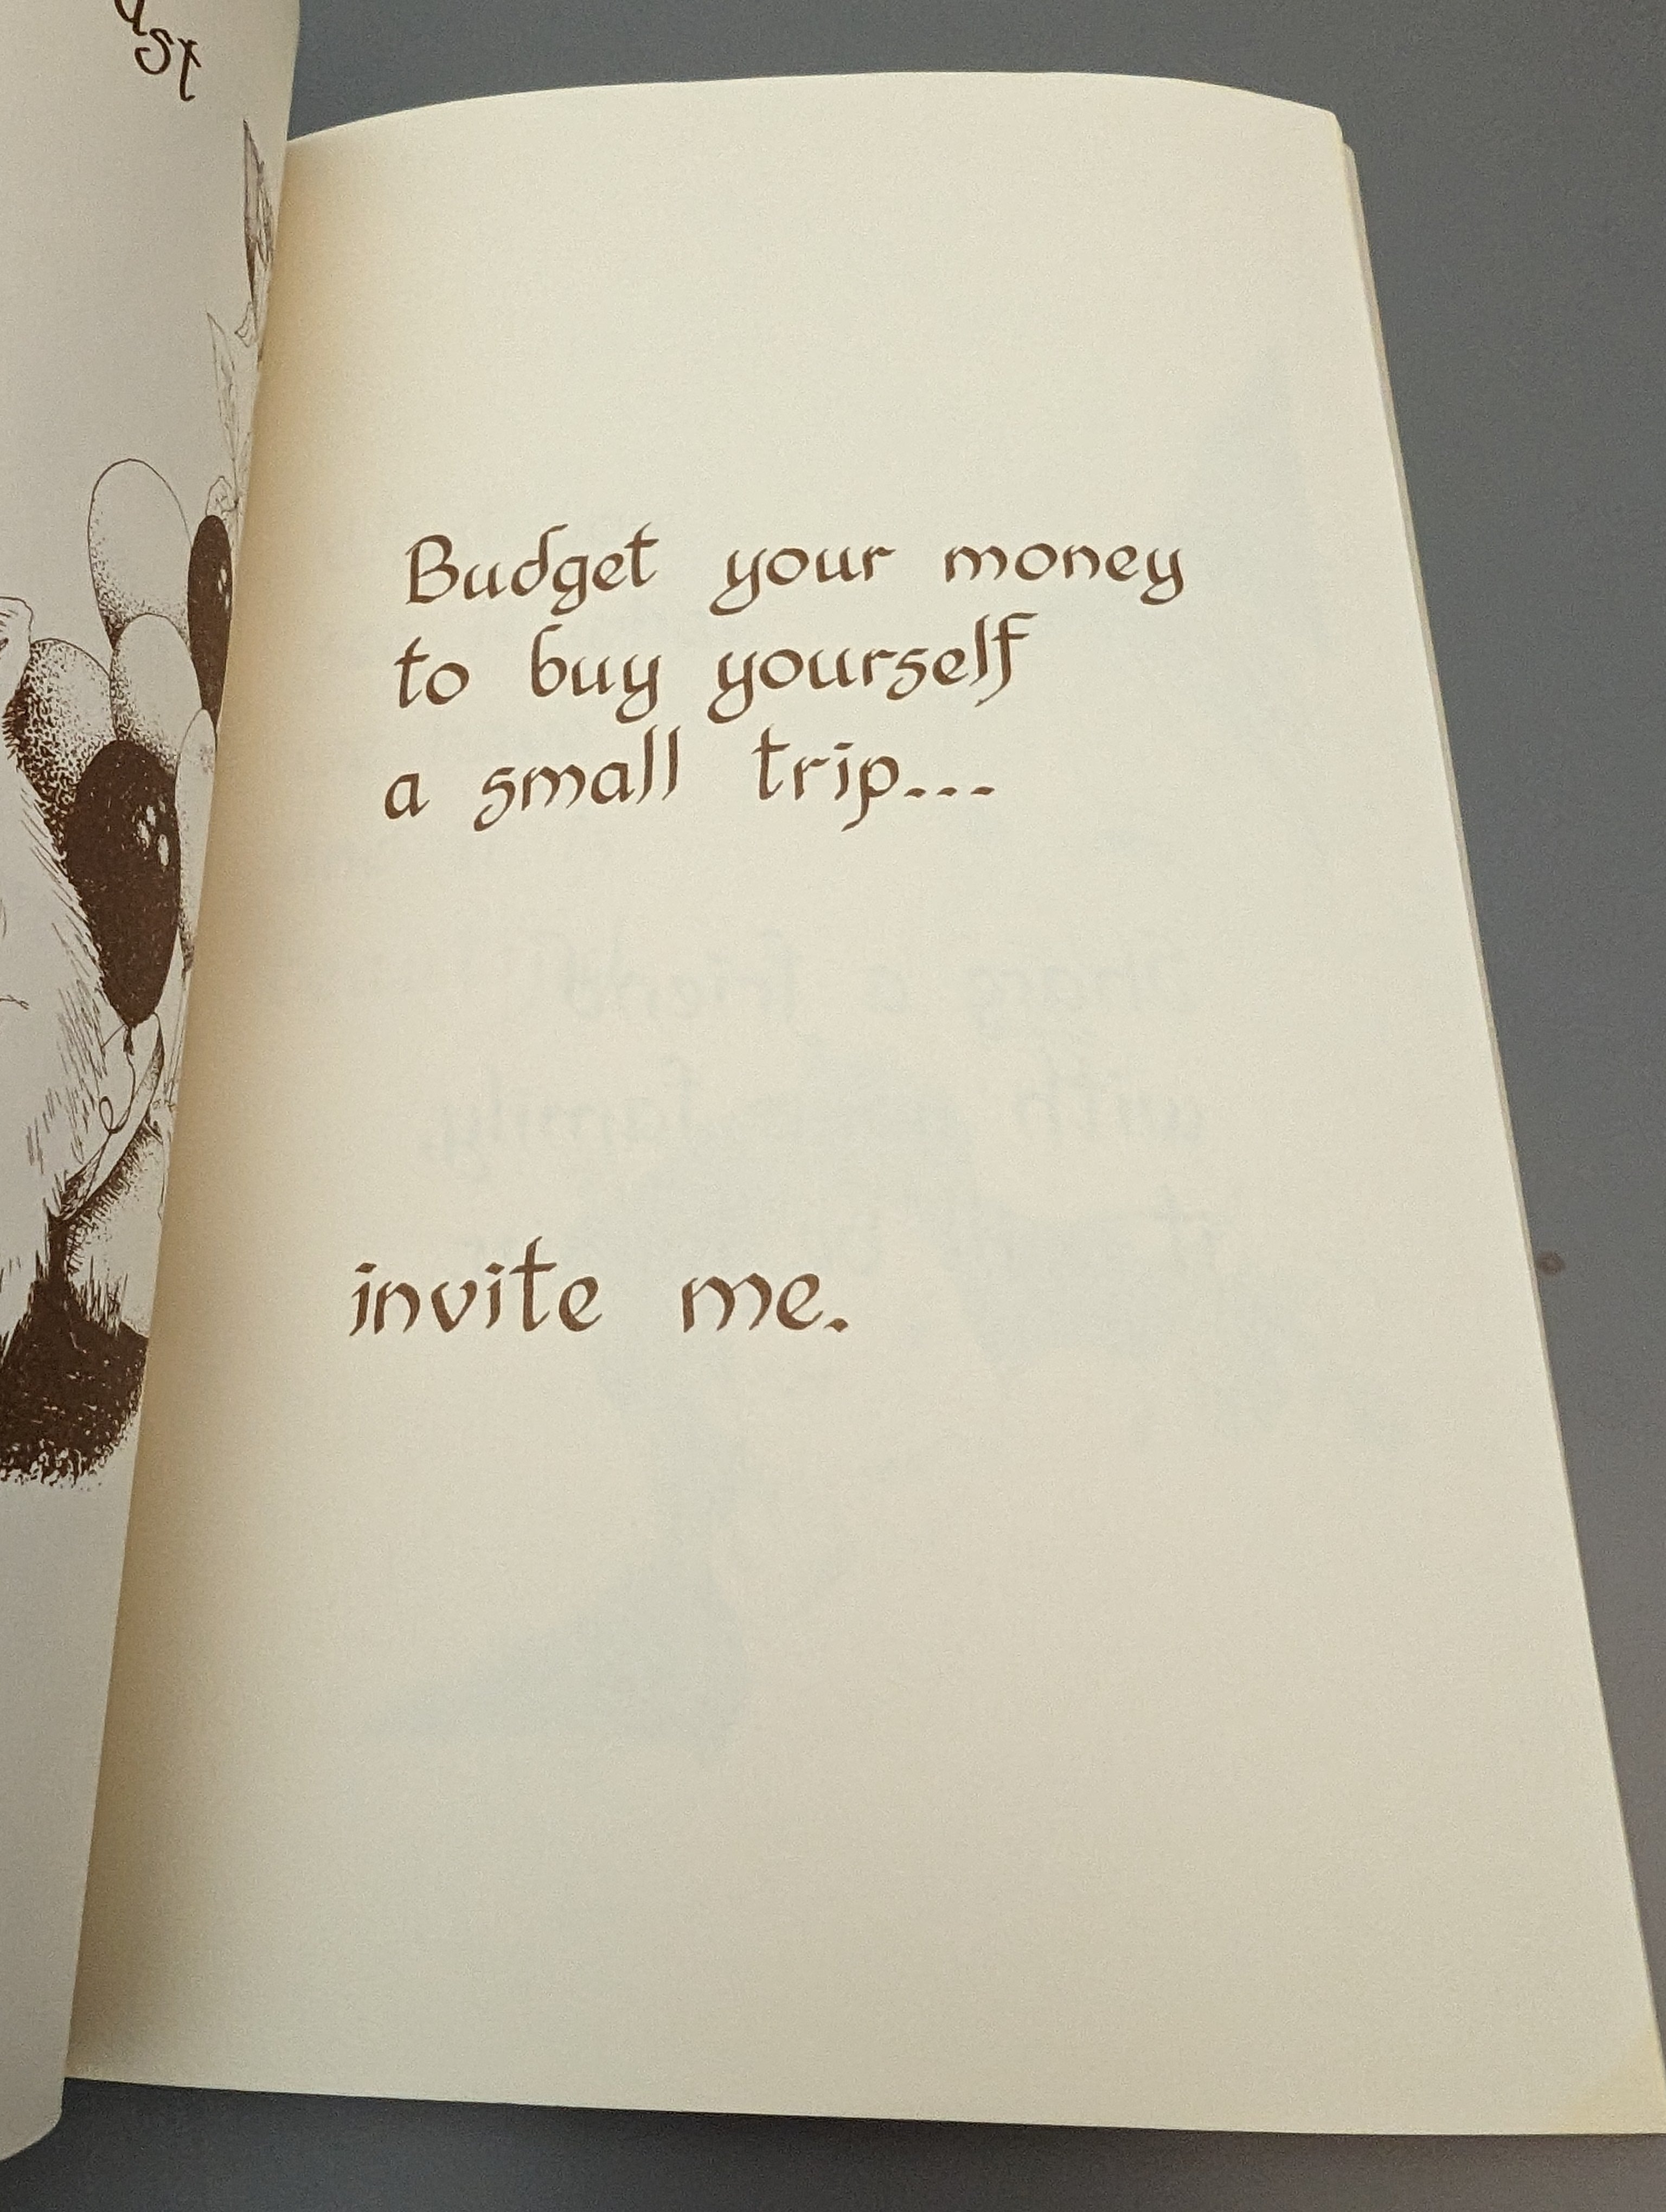 Budget your money
to buy yourself
a small trip...
invite me.